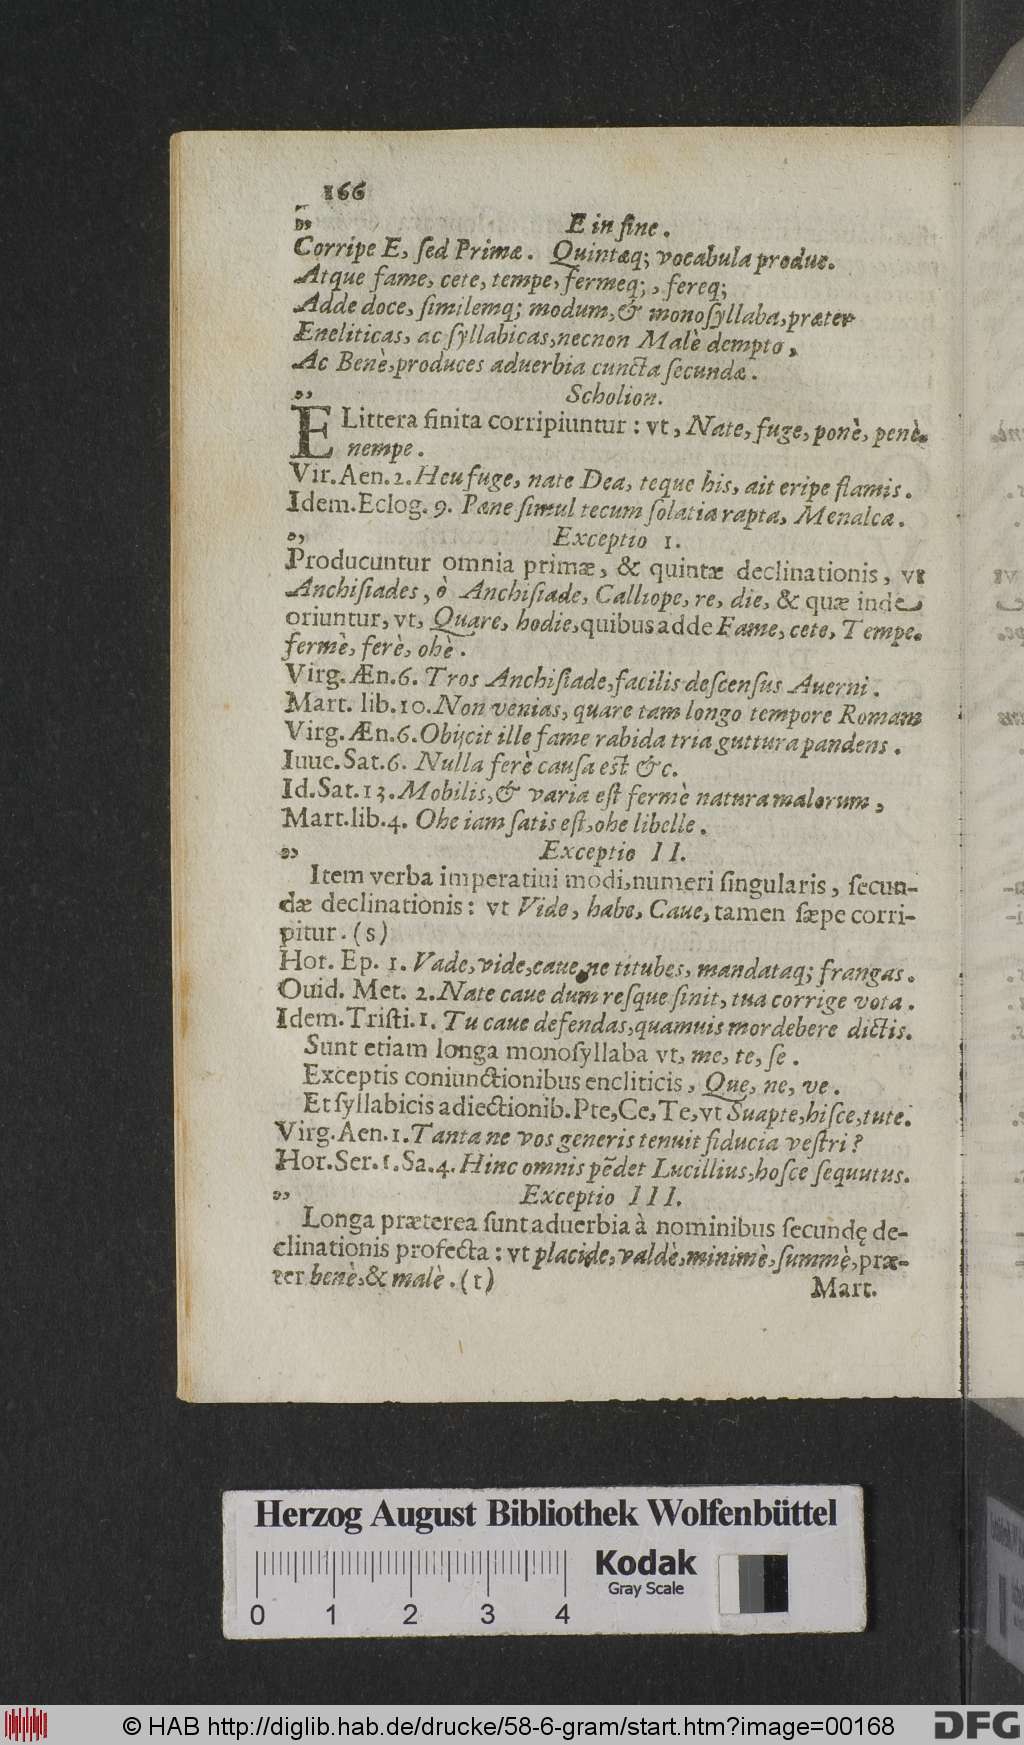 166
„ E in fine.
Corripe E, ſed Primæ. Quintæq; vocabula produc.
Atque fame, cete, tempe, fermeq;, fereq;
Adde doce, ſimilemq; modum, & monoſyllaba, præter
Encliticas, ac ſyllabicas, necnon Malè dempto,
Ac Benè, produces aduerbia cuncta ſecundæ.
„ Scholion.
E Littera finita corripiuntur: vt, Nate, fuge, ponè, penè,
nempe.
Vir. Aen. 2. Heu fuge, nate Dea, teque his, ait eripe flamis.
Idem. Eclog. 9. Pæne ſimul tecum ſolatia rapta, Menalca.
„ Exceptio 1.
Producuntur omnia primæ, & quintæ declinationis, vt
Anchiſiades, ò Anchiſiade, Calliope, re, die, & quæ inde
oriuntur, vt, Quare, hodie, quibus adde Fame, cete, Tempe.
fermè, ferè, ohè.
Virg. Æn. 6. Tros Anchiſiade, facilis deſcenſus Auerni.
Mart. lib. 10. Non venias, quare tam longo tempore Romam
Virg. Æn. 6. Obijcit ille fame rabida tria guttura pandens.
Iuue. Sat. 6. Nulla ferè cauſa eſt &c.
Id. Sat. 13. Mobilis, & varia eſt fermè natura malorum,
Mart. lib. 4. Ohe iam ſatis eſt, ohe libelle.
„ Exceptio II.
Item verba imperatiui modi, numeri ſingularis, ſecun-
dæ declinationis: vt Vide, habe, Caue, tamen ſæpe corri-
pitur. (s)
Hor. Ep. 1. Vade, vide, caue, ne titubes, mandataq; frangas.
Ouid. Met. 2. Nate caue dum reſque ſinit, tua corrige vota.
Idem. Triſti. 1. Tu caue defendas, quamuis mordebere dictis.
Sunt etiam longa monoſyllaba vt, me, te, ſe.
Exceptis coniunctionibus encliticis, Que, ne, ve.
Et ſyllabicis adiectionib. Pte, Ce, Te, vt Suapte, hiſce, tute.
Virg. Aen. 1. Tanta ne vos generis tenuit fiducia veſtri?
Hor. Ser. 1. Sa. 4. Hinc omnis pẽdet Lucillius, hoſce ſequutus.
„ Exceptio III.
Longa præterea ſunt aduerbia à nominibus ſecundę de-
clinationis profecta: vt placide, valdè, minimè, ſummè, præ-
ter benè, & malè. (t)
Mart.
Herzog August Bibliothek Wolfenbüttel
Kodak
Gray Scale
0 1 2 3 4
© HAB http://diglib.hab.de/drucke/58-6-gram/start.htm?image=00168
DFG